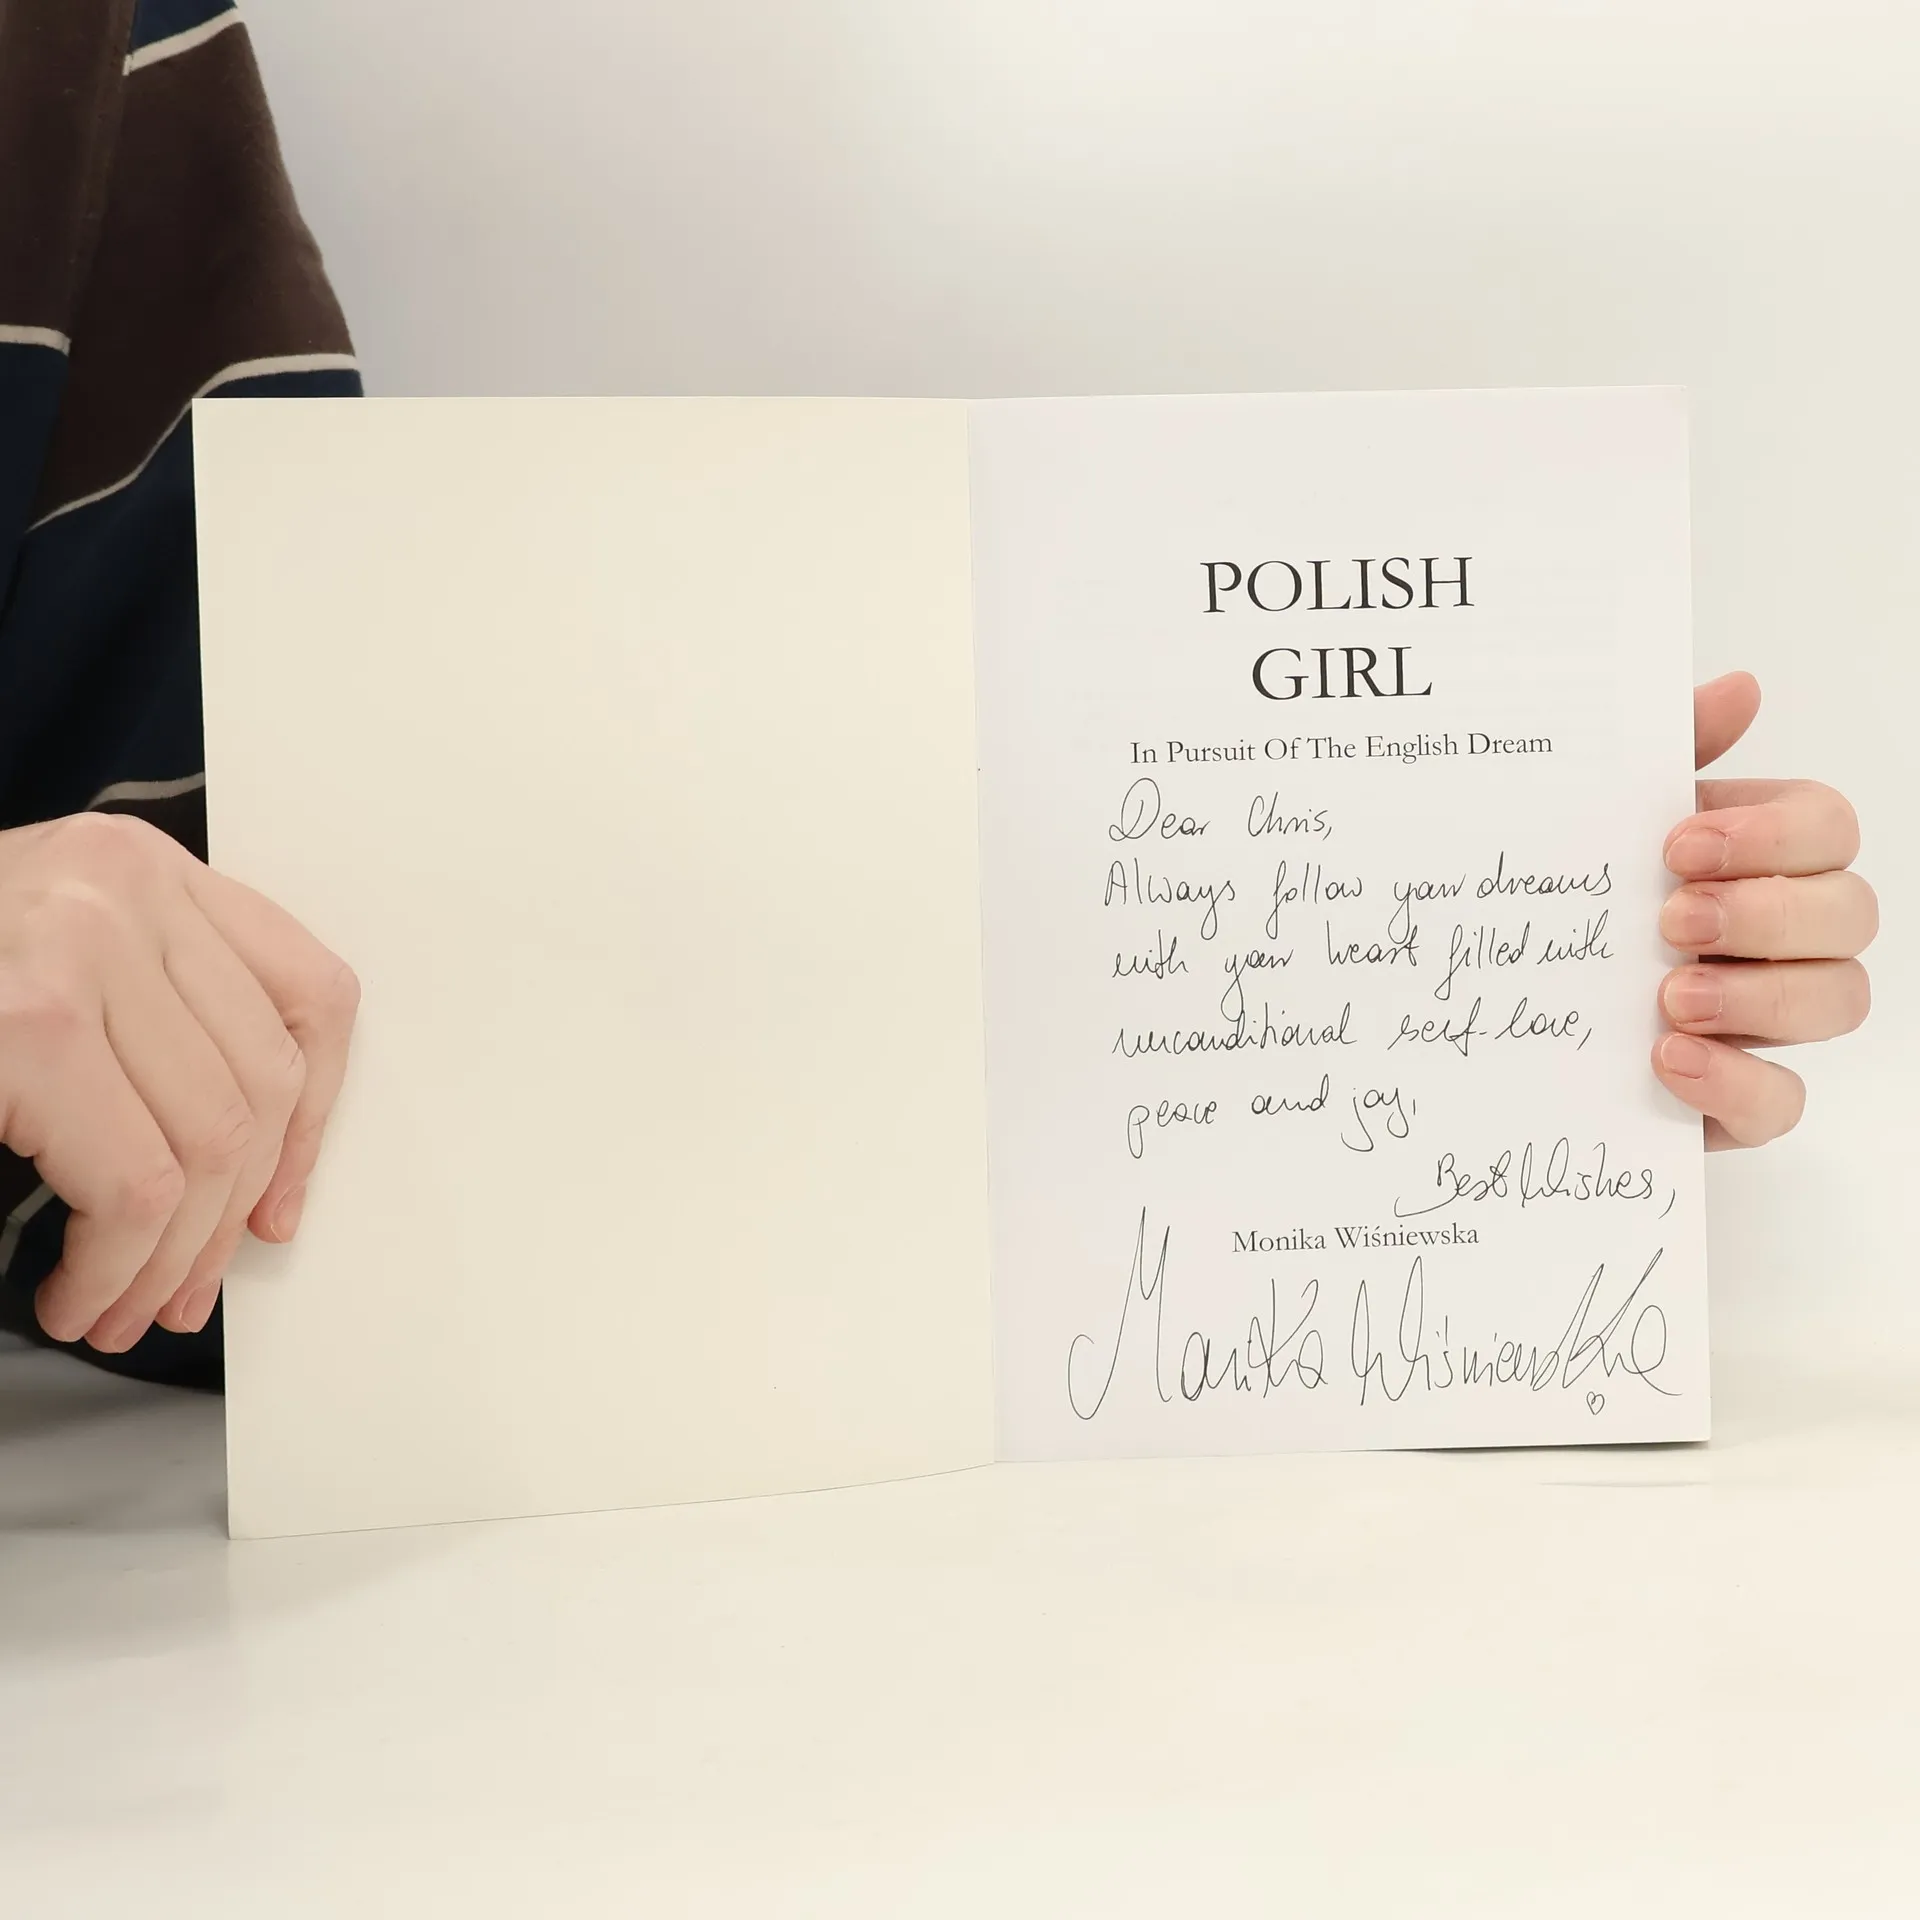 POLISH
GIRL
In Pursuit Of The English Dream
Dear Chris,
Always follow your dreams
with your heart filled with
unconditional self-love,
peace and joy,
Best Wishes,
Monika Wiśniewska
Monika Wiśniewska